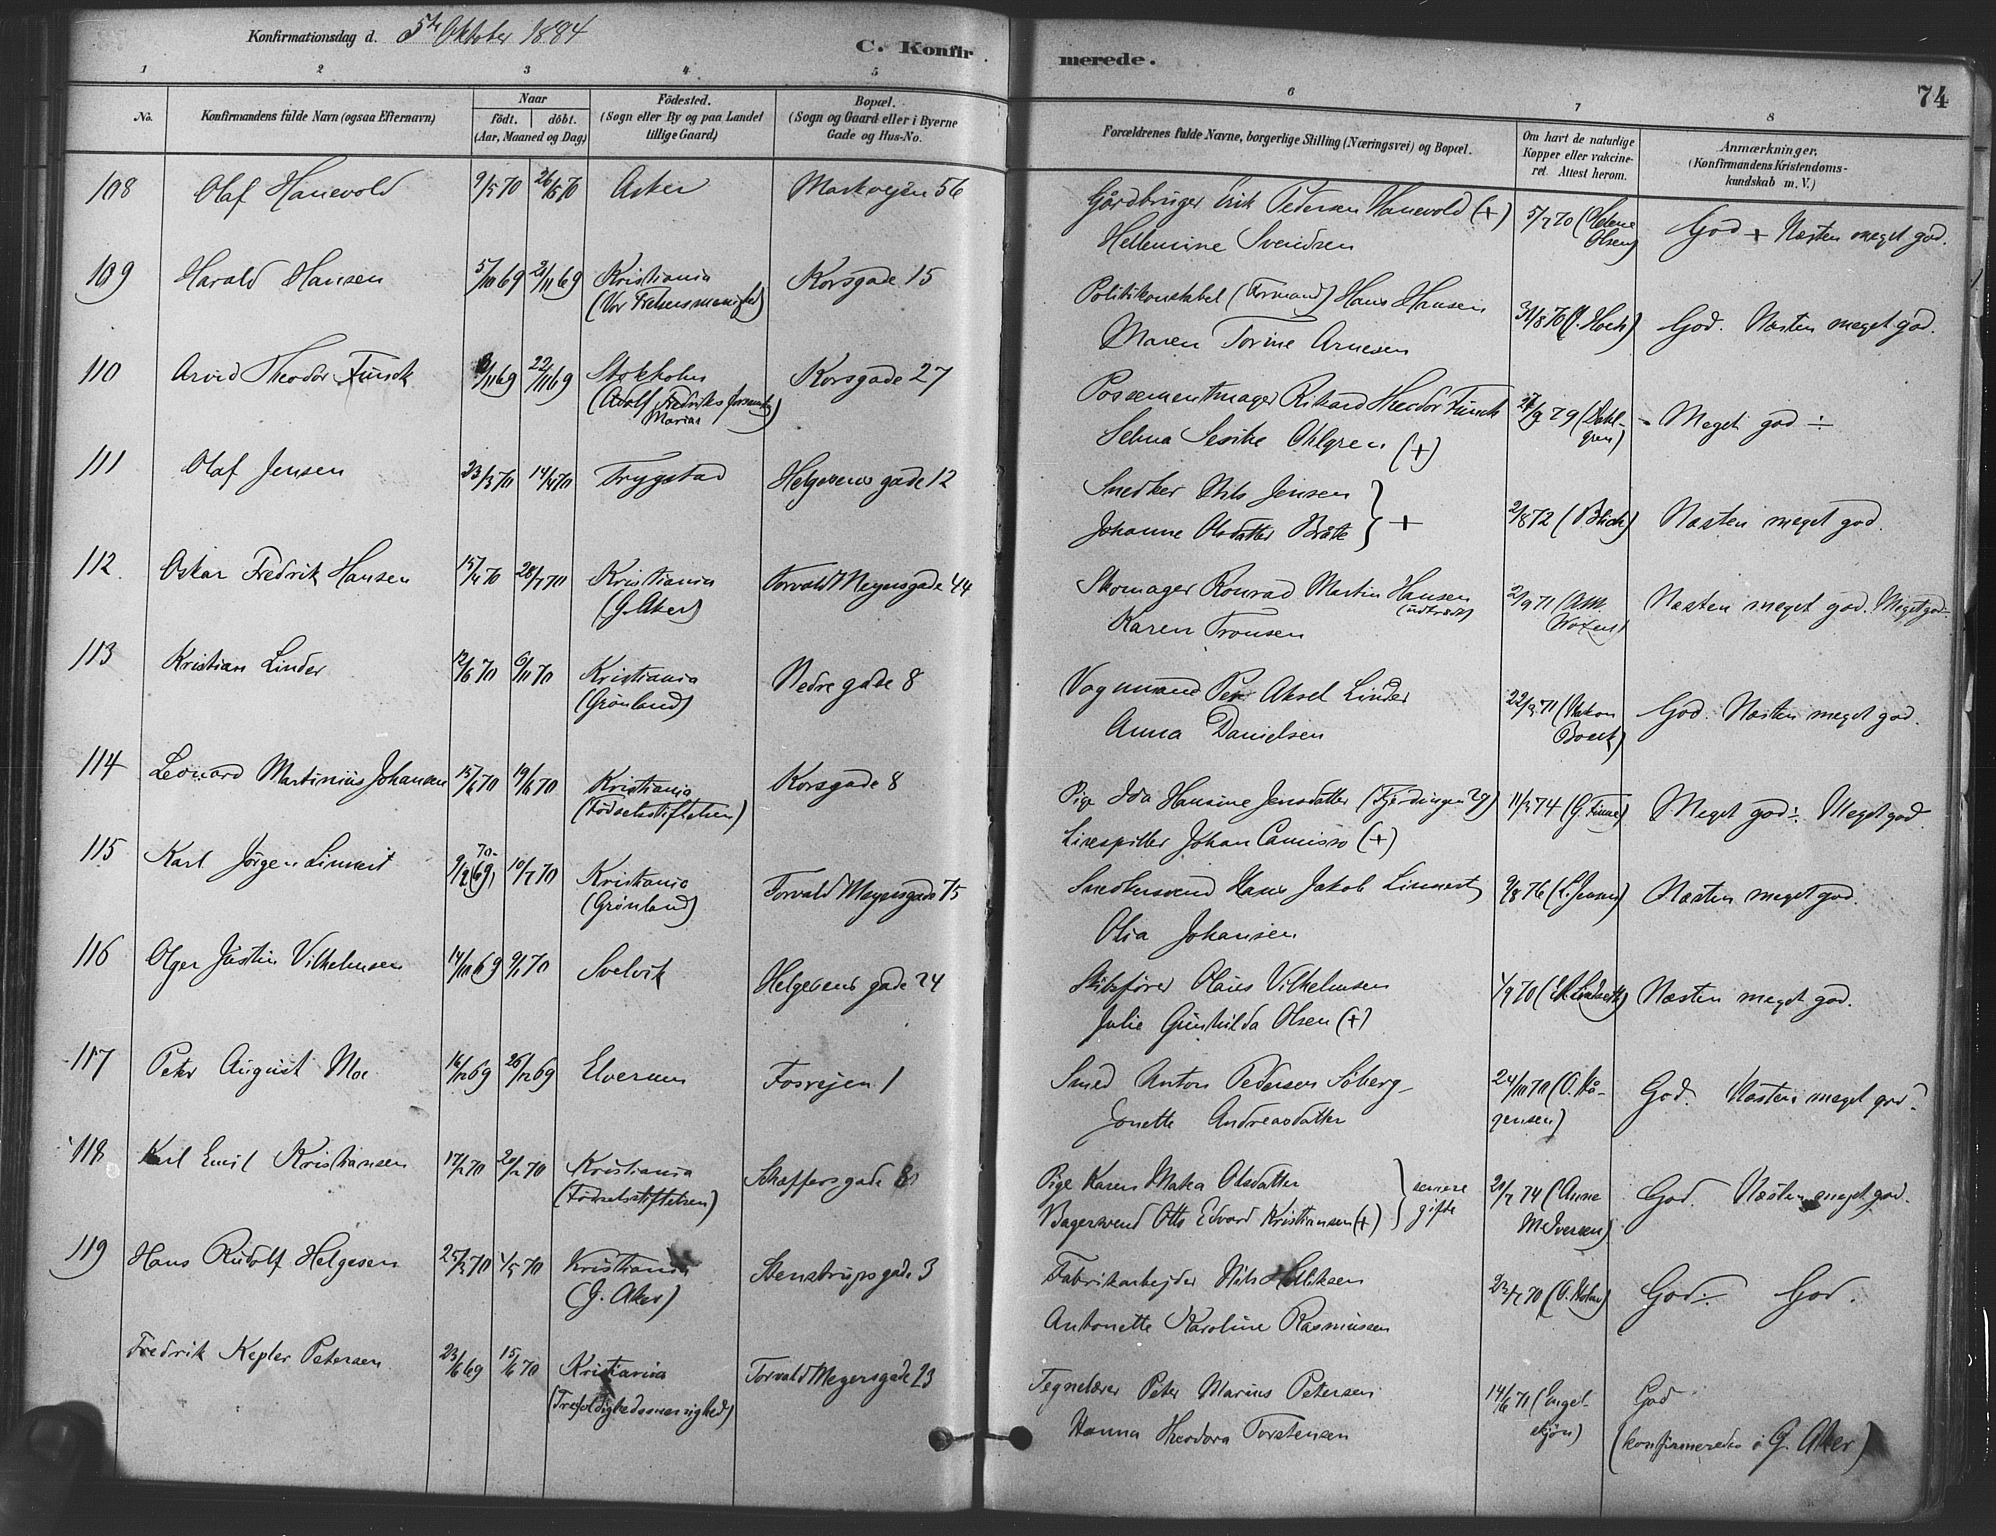 Konfirmationsdag d. 5te Oktober 1884
C. Konfirmerede.
74
1 2 3 4 5 6 7 8
No.
Konfirmandens fulde Navn (ogsaa Efternavn)
Naar
født. døbt.
(Aar, Maaned og Dag)
Födested.
(Sogn eller By og paa Landet
tillige Gaard)
Bopæl.
(Sogn og Gaard eller i Byerne
Gade og Hus-No.
Forældrenes fulde Navne, borgerlige Stilling (Næringsvei) og Bopæl.
Om havt de naturlige
Kopper eller vakcine-
ret. Attest herom.
Anmærkninger.
(Konfirmandens Kristendoms-
kundskab m. V.)
108 Olaf Hanevold 9/5 70 26/5 70 Asker Markvejen 56 Gårdbruger Erik Pedersen Hanevold (+) 5/7 70 (Helene God + Næsten meget god.
Hellemine Svendsen Olsen)
109 Harald Hansen 5/10 69 21/11 69 Kristiania Korsgade 15 Politikonstabel (Formand) Hans Hansen 31/8 76 (J. Hoch) God. Næsten meget god.
(Vor Frelsersmenighed) Maren Torine Arnesen
110 Arvid Theodor Funck /11 69 22/11 69 Stokholm Korsgade 27 Possementmager Rikard Theodor Funck 79 (Dahl- Meget god ÷
(Adolf Fredriks forsamling Selma Ohlgren (+) gren)
Marias
111 Olaf Jensen 23/3 70 14/4 70 Trygstad Helgesens gade 12 Snedker Nils Jensen 2/8 72 (Blich) Næsten meget god.
Johanne Olsdatter Bråte } +
112. Oskar Fredrik Hansen 15/4 70 28/7 70 Kristiania Torvald Meyersgade 44 Skomager Konrad Martin Hansen 2/9 71 (AM. Næsten meget god. Meget god
(G. Aker) (udtrådt)
Karen Tronsen
113 Kristian Linder 12/6 70 6/11 70 Kristiania Nedre gade 8 Vognmand Per Aksel Linder 22/9 71 (Hakon God. Næsten meget god.
(Grønland) Anna Danielsen Boeck)
114 Leonard Martinius Johansen 15/6 70 19/6 70 Kristiania Korsgade 8 Pige Ida Hansine Jensdatter (Fjerdingen 29) 11/3 74 (G. Finne) Meget god÷. Meget god.
(Födselsstiftelsen) Linespiller Johan Camisso (+)
115 Karl Jørgen Linnert 9/2 (69) 70. 10/7 70 Kristiania Torvald Meyersgade 75 Snedkersvend Hans Jakob Linnert 9/8 76 (L. Jensen) Næsten meget god.
(Grønland) Olia Johansen
116 Olger Justin Vilhelmsen 14/10 69 9/1 70 Svelvik Helgesens gade 24 Skibsfører Olaus Vilhelmsen 1/9 70 Næsten meget god.
Julie Gunhilda Olsen (+)
117 Peter August Moe 16/12 69 26/12 69 Elverum Fosvejen 1 Smed Anton Pedersen Söberg 24/10 70 (O. Hå- God. Næsten meget god.
Jonette Andreasdatter gensen)
118 Karl Emil Kristiansen 17/2 70 20/2 70 Kristiania Schæffersgade 8 Pige Karen Matea Olsdatter 21/7 74 (Anne God. Næsten meget god.
(Födselsstiftelsen) Bagersvend Otto Edvard Kristiansen (+) } senere gifte M. Iversen)
119 Hans Rudolf Helgesen 25/3 70 1/5 70 Kristiania Stenstrupsgade 3 Fabrikarbejder Nils Helliksen 23/7 70 (O. Holm) God÷. God.
(G. Aker) Antonette Karoline Rasmussen
Fredrik Kepler Petersen 23/6 69 15/6 70 Kristiania Torvald Meyersgade 23 Tegnelærer Peter Marius Petersen 14/6 71 (Engel- God
(Trefoldighedsmenighed) Hanna Theodora Torstensen skjøn) (konfirmeredes i G. Aker)